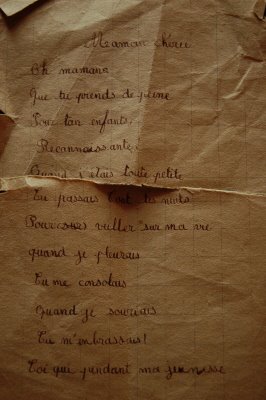 Maman chérie
Oh maman
Que tu prends de peine
Pour tan enfants,
Reconnaissante,
Quand j'étais toute petite
Tu passais tout tes nuits
Pour veller sur ma vie
quand je pleurais
Tu me consolais
Quand je souriais
Tu m'embrassais!
Toi qui pendant ma jeunesse